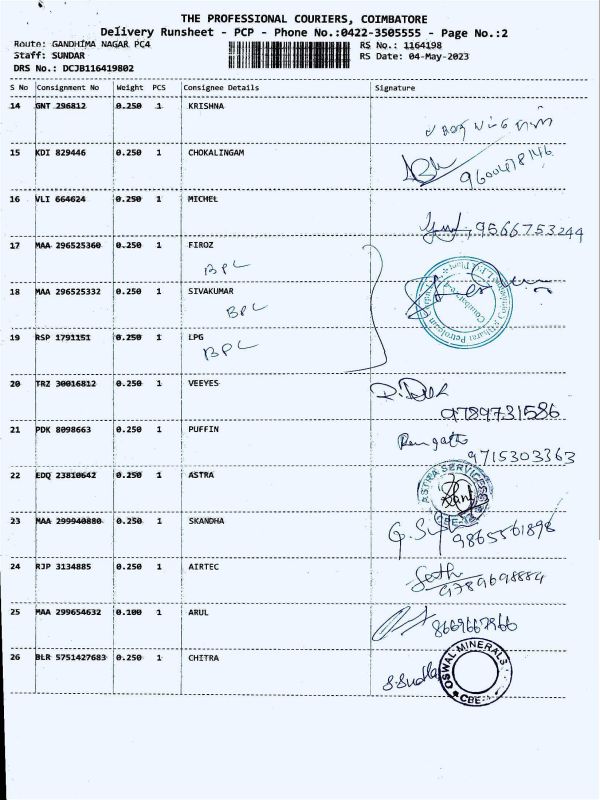 THE PROFESSIONAL COURIERS, COIMBATORE
Delivery Runsheet - PCP - Phone No.:0422-3505555 - Page No.:2
Route: GANDHIMA NAGAR PC4
RS No.: 1164198
Staff: SUNDAR
RS Date: 04-May-2023
DRS No.: DCJB116419802
S No Consignment No Weight PCS Consignee Details Signature
14 GNT 296812 0.250 1 KRISHNA
15 KDI 829446 0.250 1 CHOKALINGAM
9600478146
16 VLI 664624 0.250 1 MICHEL
9566753244
17 MAA 296525360 0.250 1 FIROZ
BPL
18 MAA 296525332 0.250 1 SIVAKUMAR
BPL
19 RSP 1791151 0.250 1 LPG
BPL
20 TRZ 30016812 0.250 1 VEEYES
9789731586
21 PDK 8098663 0.250 1 PUFFIN
9715303363
22 EDQ 23810642 0.250 1 ASTRA
ASTRA SERVICES
CBE
23 MAA 299940880 0.250 1 SKANDHA
9865561898
24 RJP 3134885 0.250 1 AIRTEC
9789698884
25 MAA 299654632 0.100 1 ARUL
26 BLR 5751427683 0.250 1 CHITRA
OSWAL MINERALS
CBE